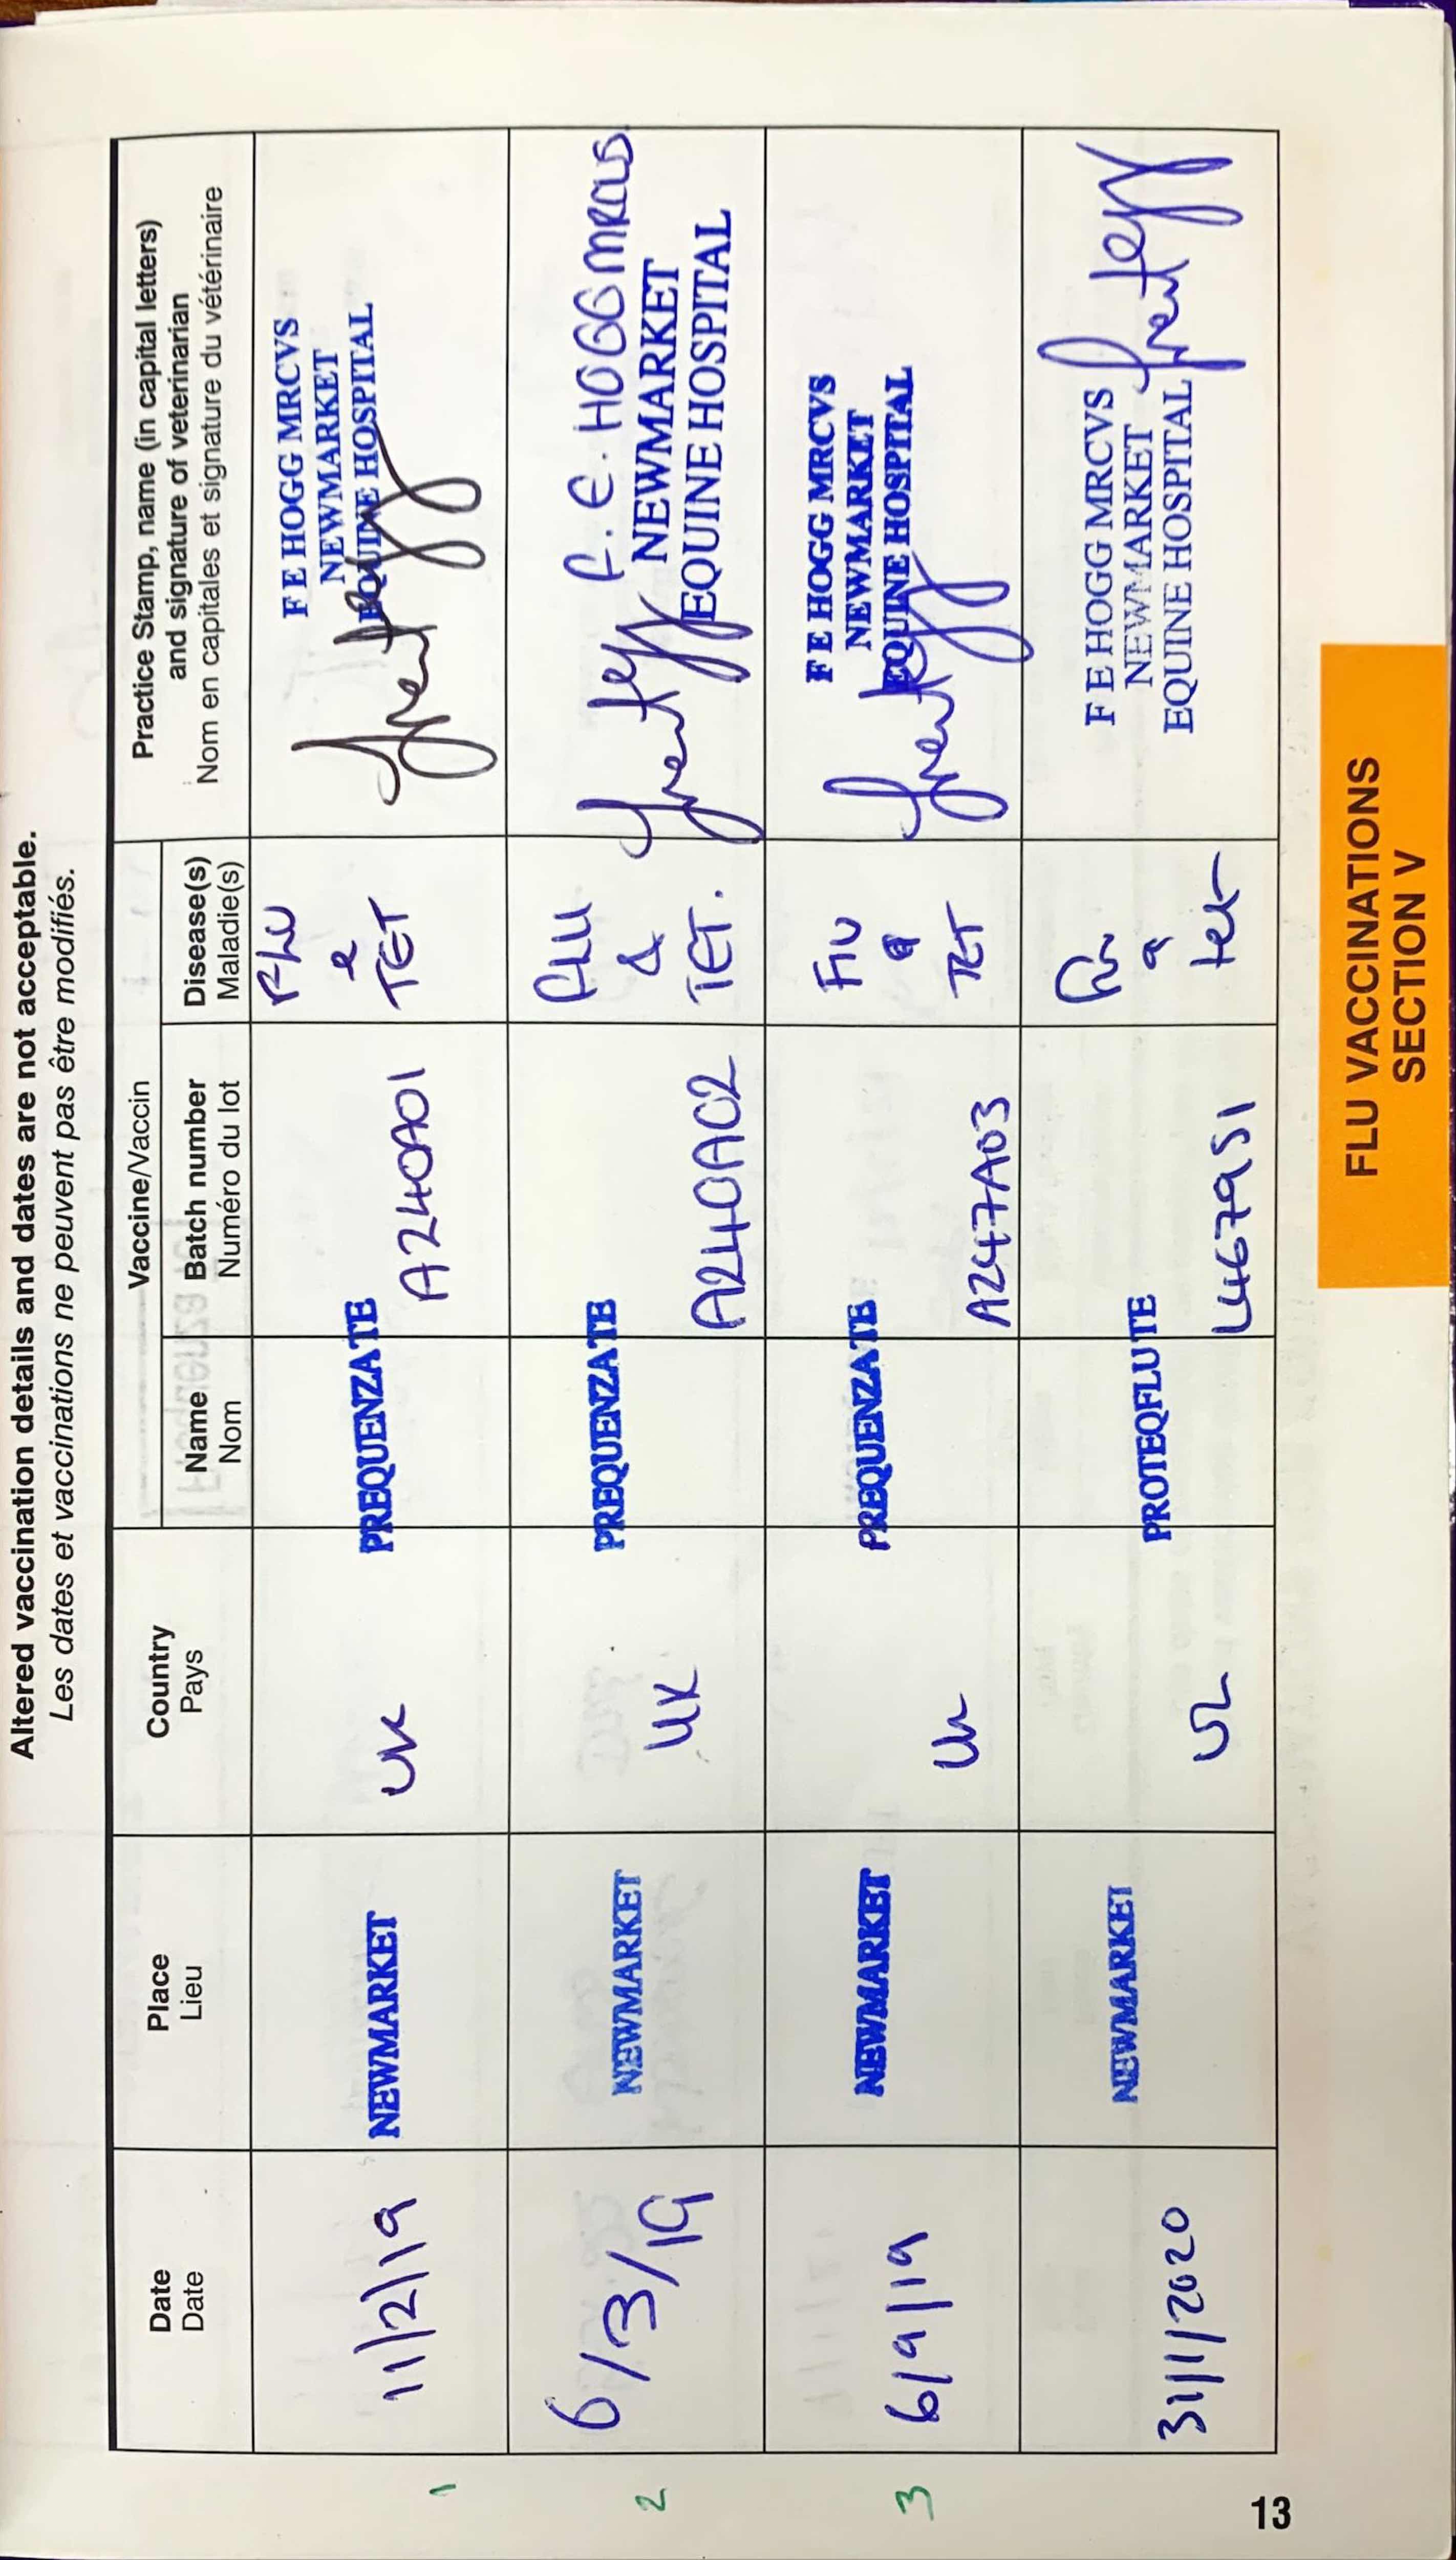 Altered vaccination details and dates are not acceptable.
Les dates et vaccinations ne peuvent pas être modifiés.
Date
Date
Place
Lieu
Country
Pays
Vaccine/Vaccin
Name
Nom
Batch number
Numéro du lot
Disease(s)
Maladie(s)
Practice Stamp, name (in capital letters)
and signature of veterinarian
Nom en capitales et signature du vétérinaire
1
11/2/19
NEWMARKET
UK
PREQUENZA TE
A240A01
Flu
&
TET
F E HOGG MRCVS
NEWMARKET
EQUINE HOSPITAL
2
6/3/19
NEWMARKET
UK
PREQUENZA TE
A240A02
FLU
&
TET.
F.E. HOGG MRCVS
NEWMARKET
EQUINE HOSPITAL
3
6/9/19
NEWMARKET
UK
PREQUENZA TE
A247A03
FLU
&
TET
F E HOGG MRCVS
NEWMARKET
EQUINE HOSPITAL
31/1/2020
NEWMARKET
UK
PROTEQFLU TE
L467951
Flu
&
tet
F E HOGG MRCVS
NEWMARKET
EQUINE HOSPITAL
13
FLU VACCINATIONS
SECTION V